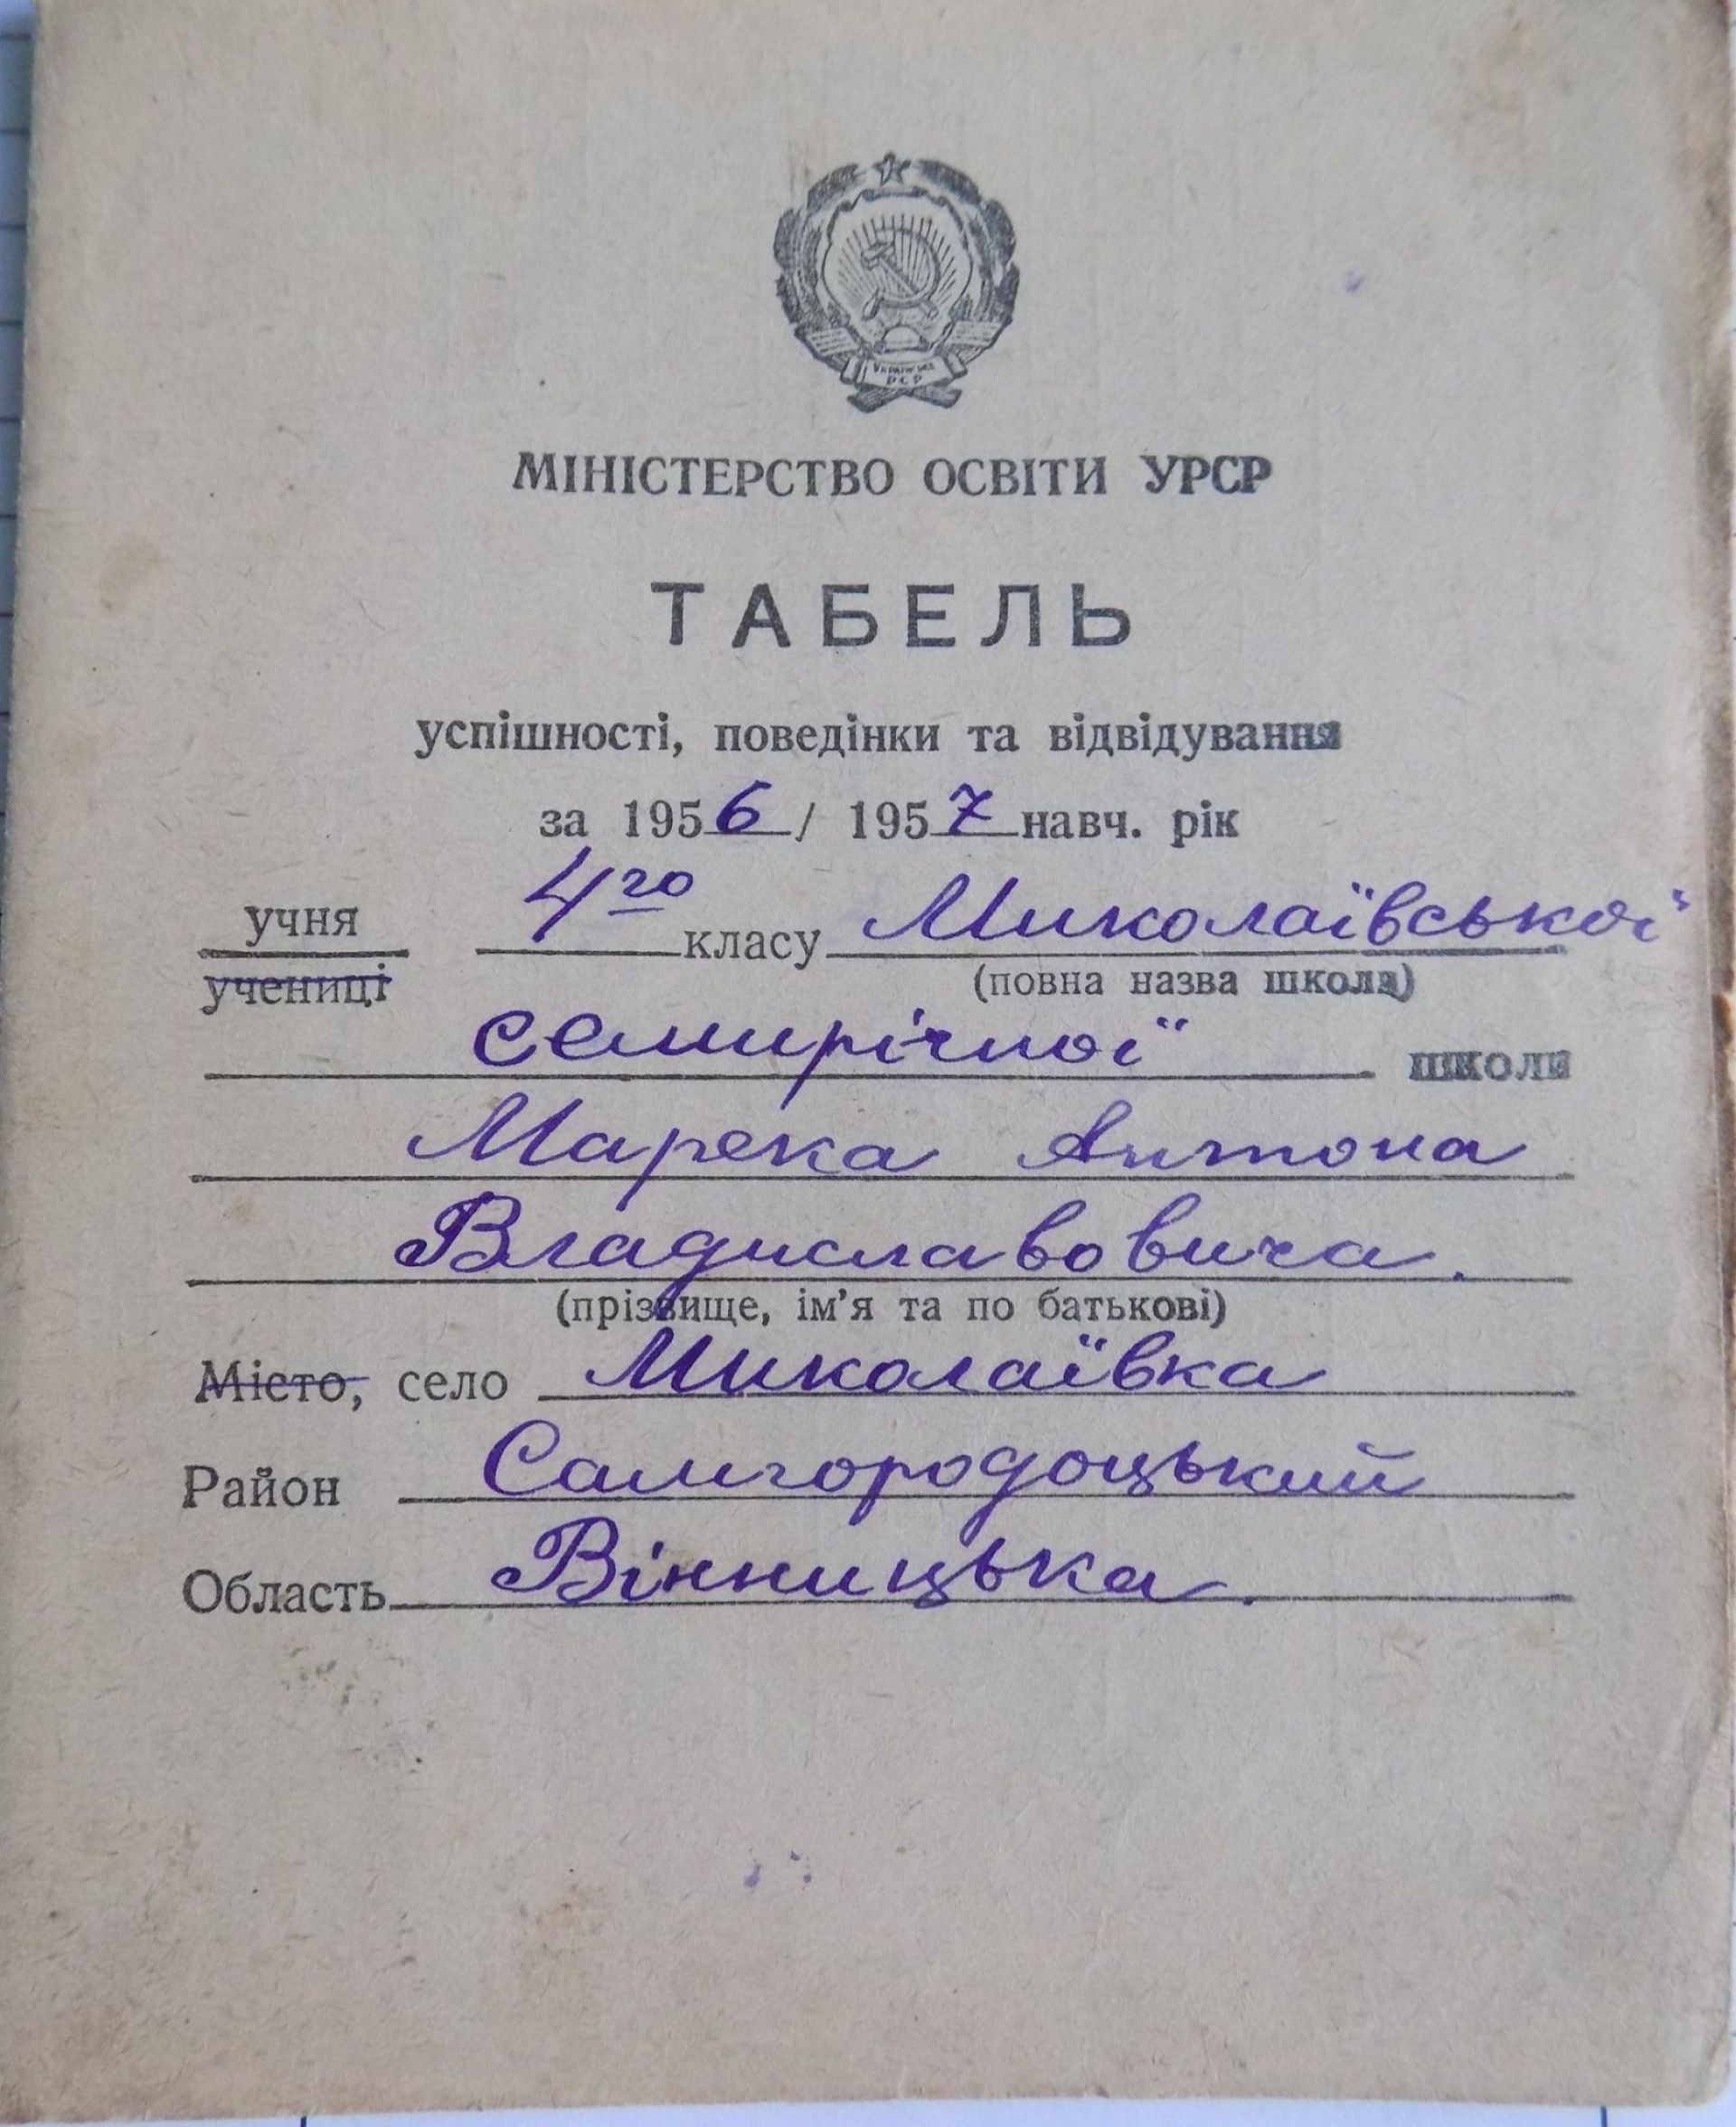 УКРАЇНСЬКА
РСР
МІНІСТЕРСТВО ОСВІТИ УРСР
ТАБЕЛЬ
успішності, поведінки та відвідування
за 1956 / 1957 навч. рік
учня 4го класу Миколаївської
учениці (повна назва школи)
семирічної школи
Марека Антона
Владиславовича.
(прізвище, ім’я та по батькові)
Місто, село Миколаївка
Район Самгородоцький
Область Вінницька.